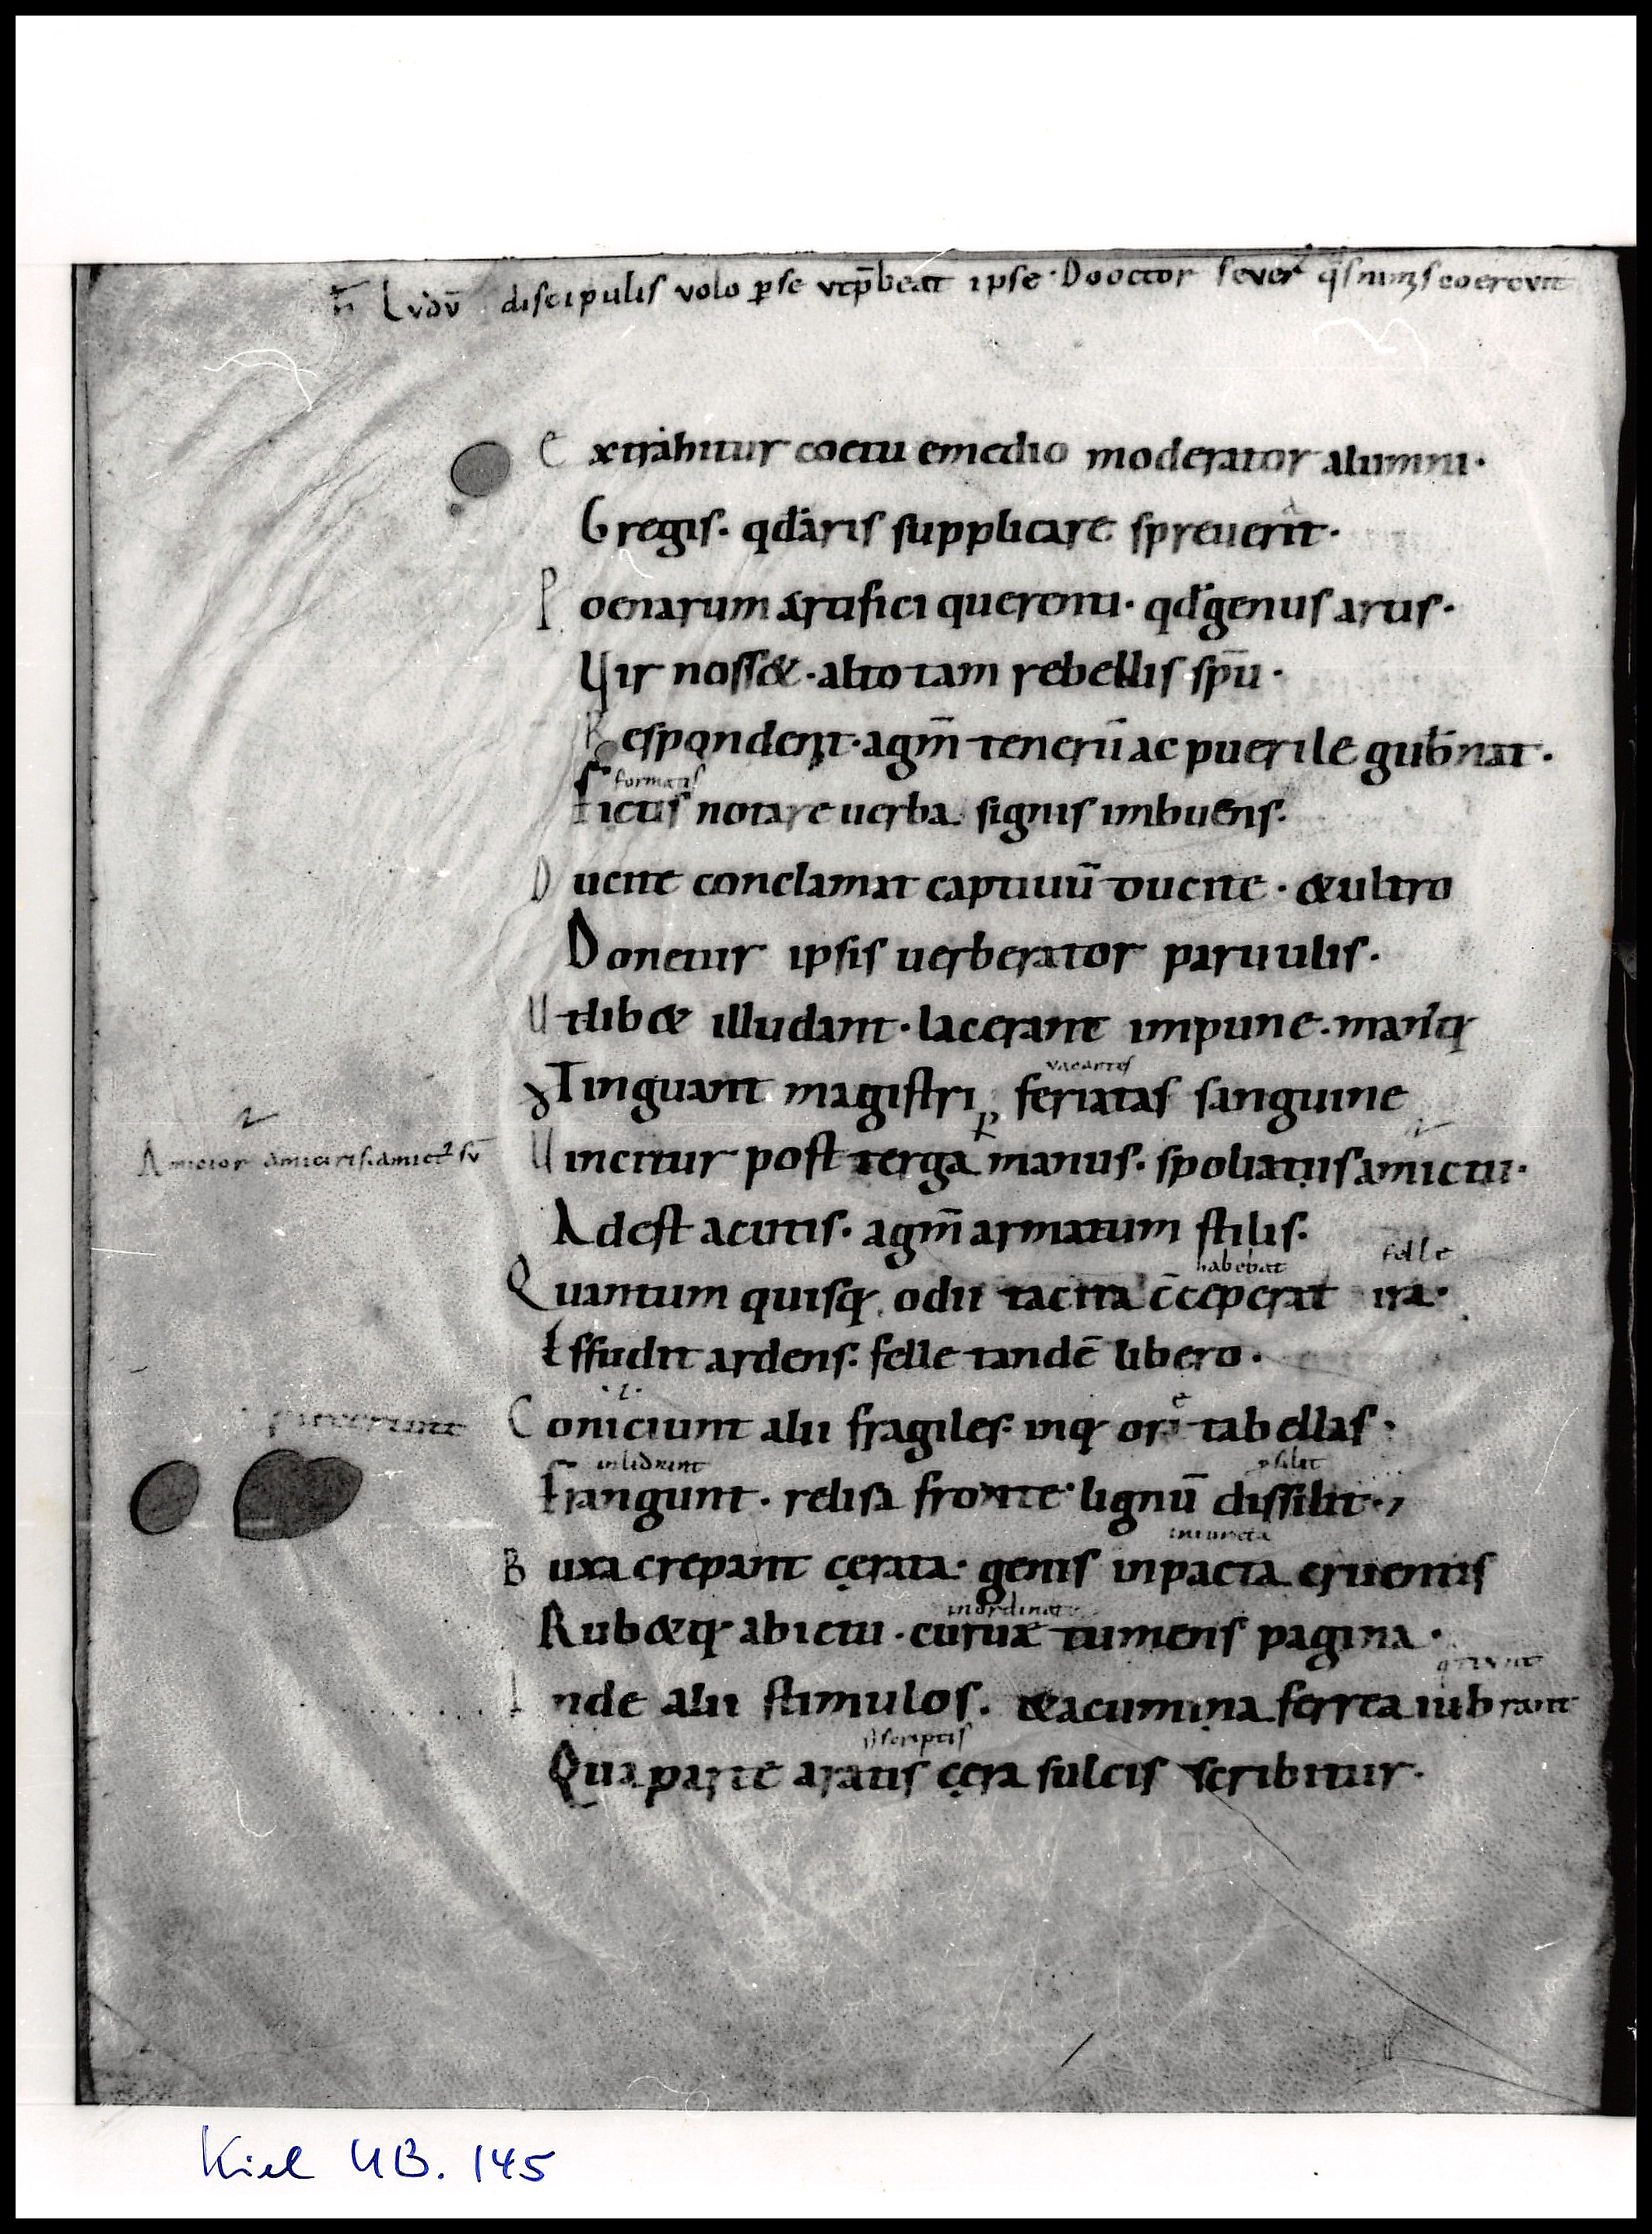 discipulis volo ꝑse vtp̄beat ipse · Dooctor sever᷒
Extrahitur coetu emedio moderator alumni·
Gregis· qđaris supplicare spreuerit·
Poenarum artifici querenti· qđgenus artis·
Vir noss&· alto tam rebellis sp̄u·
Respondent· agm̄ tenerū ac puerile gub̄nat·
formatis
Fictis notare uerba signis imbuens·
Ducite conclamat captiuū ducite· &ultro
Donetur ipsis uerberator paruulis·
Vtlib& illudant· lacerant impune· manꝰq;
vacantes
Tinguant magistri feriatas sanguine
Amicior amiciris. amict᷒ sū
Vincitur post terga manus· spoliatus amictu·
Adest acutis· agm̄ armatum stilis·
habebat felle
Quantum quisq; odii tacita c̄ceperat ira·
Effudit ardens· felle tandē libero·
Coniciunt alii fragiles· inq; ore tabellas·
inlidunt
Frangunt· relisa fronte· lignū dissilit·
iniuncta
Buxa crepant cęrata· genis inpacta cruentis
Rub&q; abictu· curuae tumens pagina·
Inde alii stimulos· &acumina ferrea uibrant
scriptis
Quaparte aratis cęra sulcis scribitur·
Kiel UB. 145